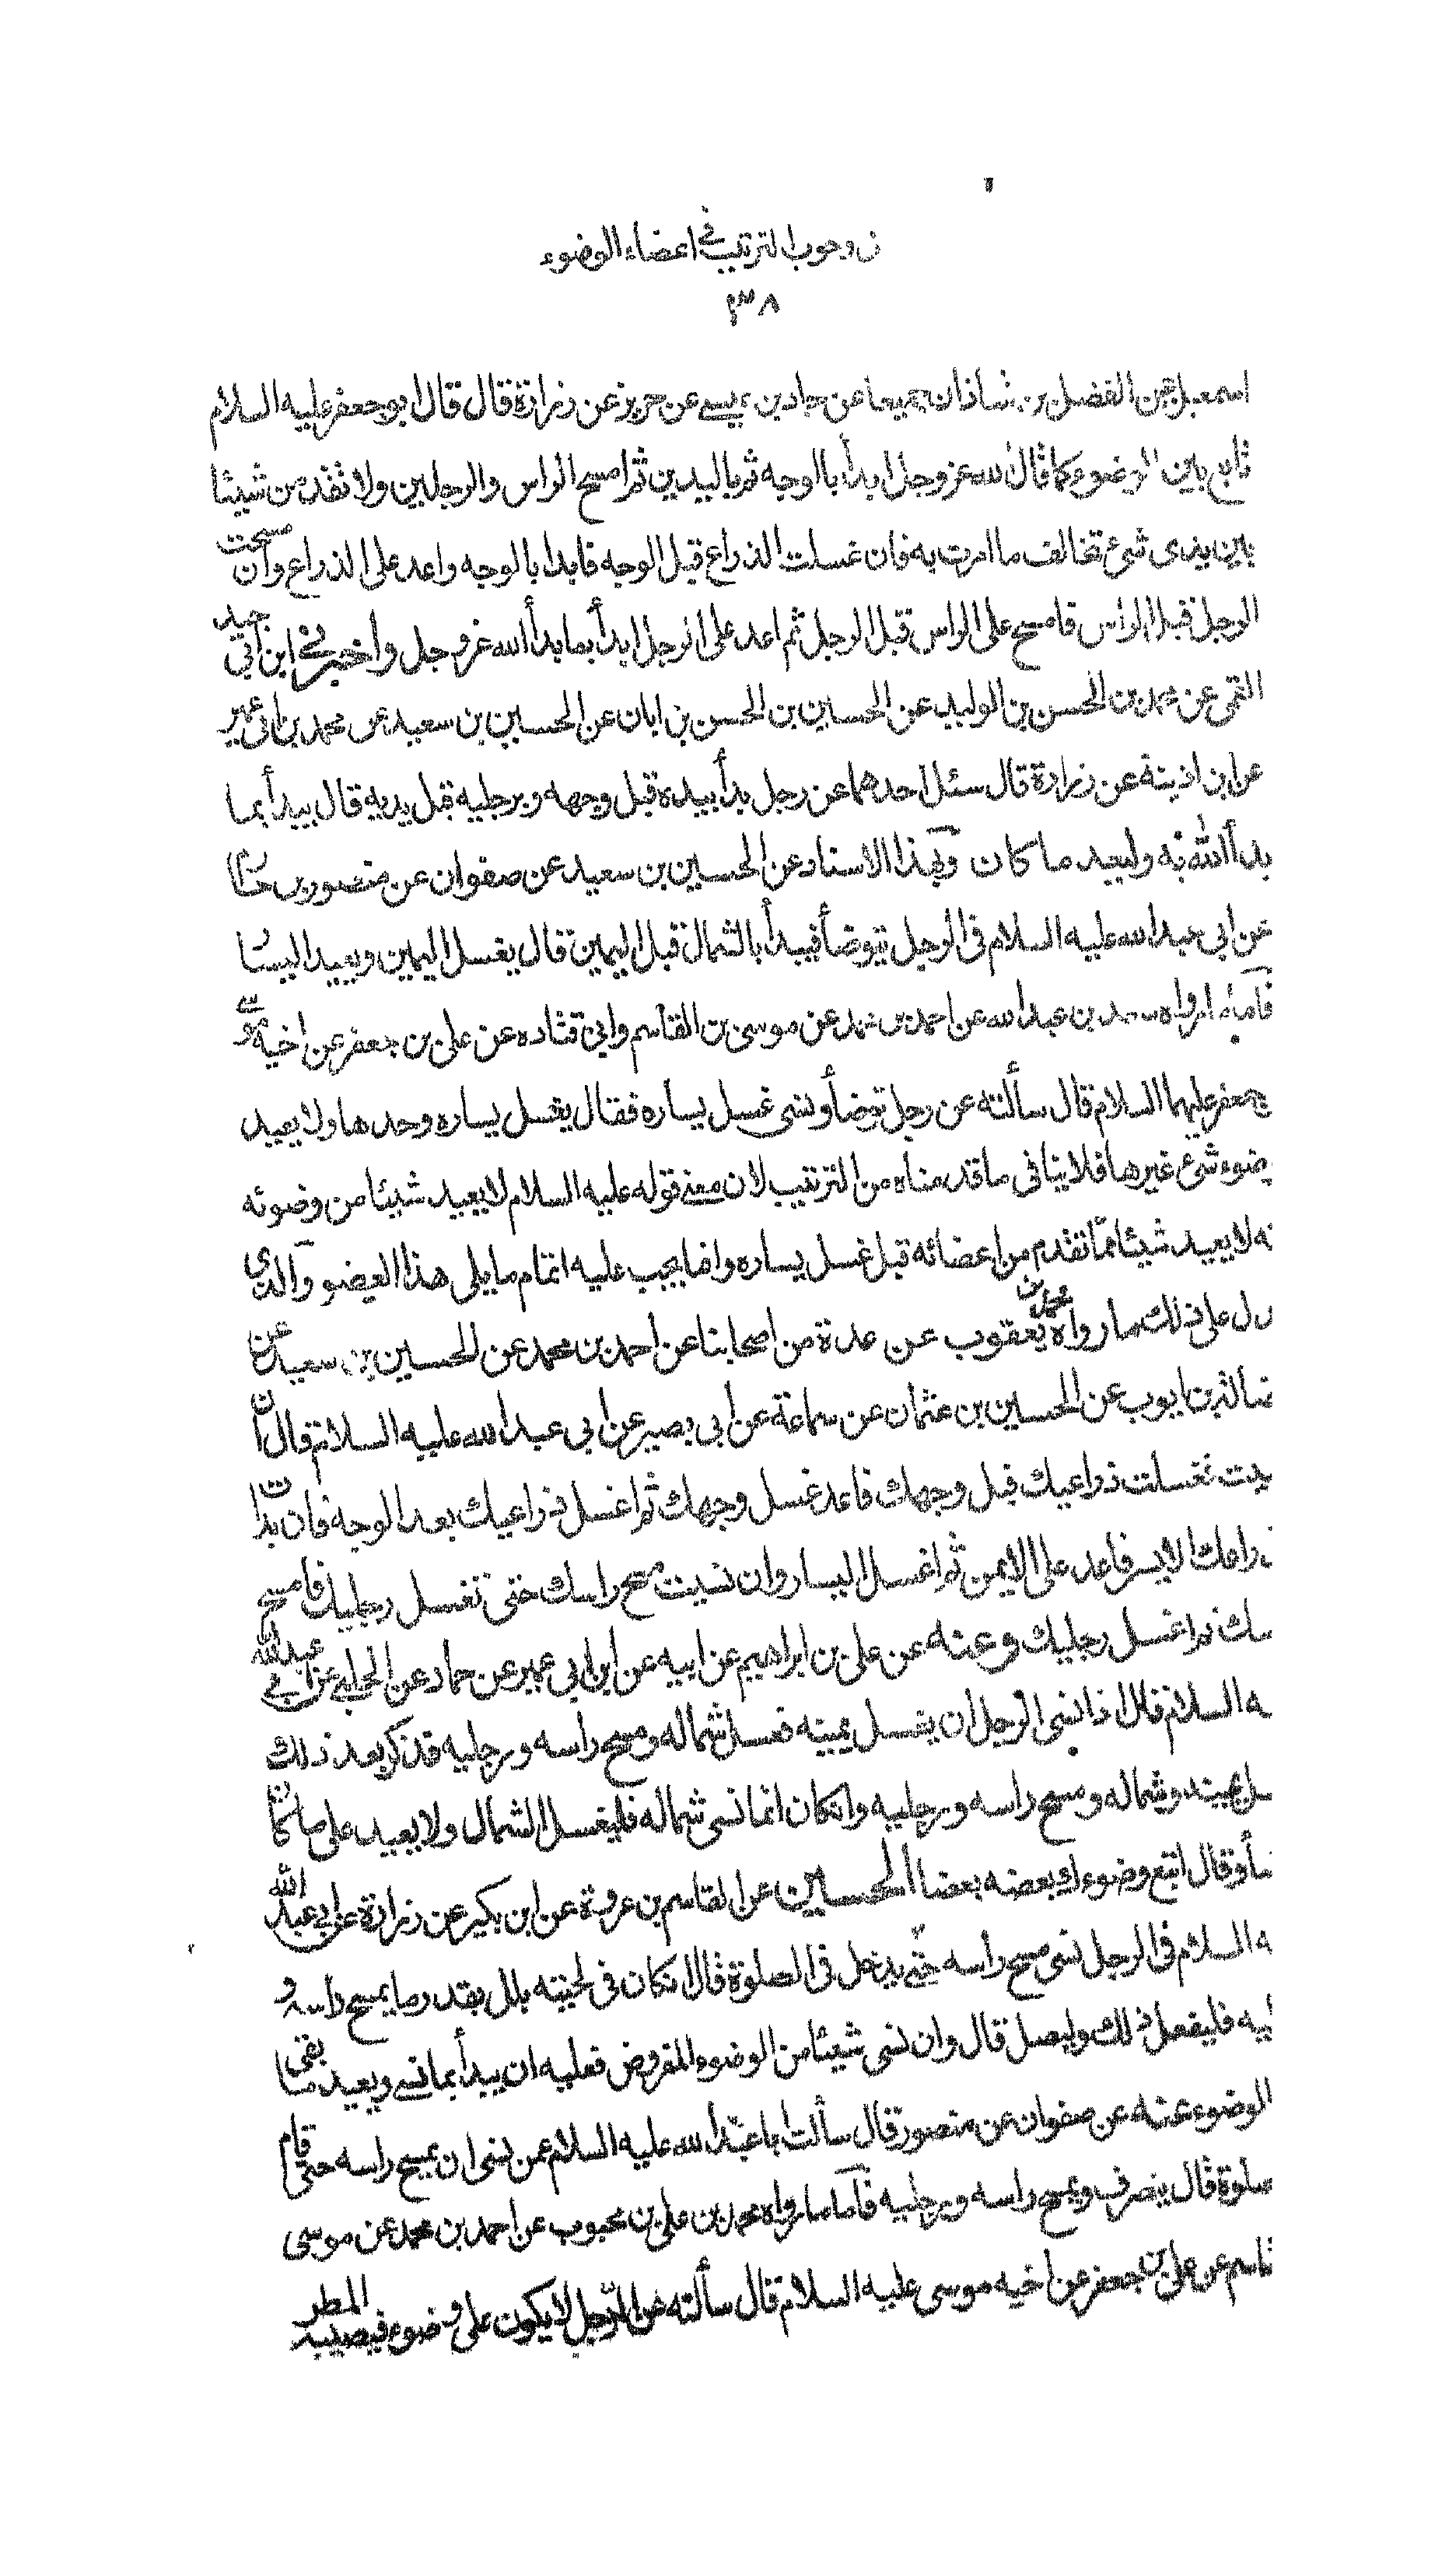 وجوب الترتيب في اعضاء الوضوء
٣٨
اسمعيل عن الفضل بن شاذان جميعا عن حماد بن عيسى عن حريز عن زرارة قال قال ابو جعفر عليه السلام
تابع بين الوضوء كما قال الله عز وجل ابدأ بالوجه ثم باليدين ثم امسح الراس والرجلين ولا تقدمن شيئا
بين يدى شئ تخالف ما امرت به فان غسلت الذراع قبل الوجه فابدا بالوجه واعد على الذراع وان مسحت
الرجل قبل الراس فامسح على الراس قبل الرجل ثم اعد على الرجل ابدأ بما بدأ الله عز وجل واخبرني ابن ابي جيد
القمى عن محمد بن الحسن بن الوليد عن الحسين بن الحسن بن ابان عن الحسين بن سعيد عن محمد بن ابى عمير
عن ابن اذينة عن زرارة قال سئل احدهما عن رجل بدأ بيده قبل وجهه وبرجليه قبل يديه قال يبدأ بما
بدأ الله به وليعيد ما كان وبهذا الاسناد عن الحسين بن سعيد عن صفوان عن منصور بن حازم
عن ابي عبد الله عليه السلام فى الرجل يتوضأ فيبدأ بالشمال قبل اليمين قال يغسل اليمين ويعيد اليسار
فاما ما رواه سعد بن عبد الله عن احمد بن محمد عن موسى بن القاسم وابي قتاده عن على بن جعفر عن اخيه موسى
جعفر عليهما السلام قال سألته عن رجل توضأ ونسى غسل يساره فقال يغسل يساره وحدها ولا يعيد
وضوء شئ غيرها فلا ينافى ما قدمناه من الترتيب لان معنى قوله عليه السلام لا يعيد شيئا من وضوئه
نه لا يعيد شيئا مما تقدم من اعضائه قبل غسل يساره وانما يجب عليه اتمام ما يلى هذا العضو والذى
دل على ذلك ما رواه محمد بن يعقوب عن عدة من اصحابنا عن احمد بن محمد عن الحسين بن سعيد عن
ضالة بن ايوب عن الحسين بن عثمان عن سماعة عن ابى بصير عن ابى عبد الله عليه السلام قال ان
سيت فغسلت ذراعيك قبل وجهك فاعد غسل وجهك ثم اغسل ذراعيك بعد الوجه فان بدأت
ذراعك الايسر فاعد على الايمن ثم اغسل اليسار وان نسيت مسح راسك حتى تغسل رجليك فامسح
سك ثم اغسل رجليك وعنه عن على بن ابراهيم عن ابيه عن ابن ابي عمير عن حماد عن الحلبي عن ابي عبد الله
يه السلام قال اذا نسى الرجل ان يغسل يمينه فغسل شماله ومسح راسه ورجليه فذكر بعد ذلك
سل يمينه وشماله ومسح راسه ورجليه وان كان انما نسى شماله فليغسل الشمال ولا يعيد على ما كان
ضأ وقال اتبع وضوءك بعضه بعضا الحسين عن القاسم بن عروة عن ابن بكير عن زرارة عن ابي عبد الله
يه السلام فى الرجل نسى مسح راسه حتى يدخل فى الصلوة قال ان كان فى لحيته بلل بقدر ما يمسح راسه و
ليه فليفعل ذلك وليصل قال وان نسى شيئا من الوضوء المفروض فعليه ان يبدأ بما نسى ويعيد ما بقى
الوضوء عنه عن صفوان عن منصور قال سألت ابا عبد الله عليه السلام عمن نسى ان يمسح راسه حتى قام
صلوة قال ينصرف ويمسح راسه ورجليه فاما ما رواه محمد بن على بن محبوب عن احمد بن محمد عن موسى
قاسم عن على بن جعفر عن اخيه موسى عليه السلام قال سألته عن الرجل لا يكون على وضوء فيصيبه المطر